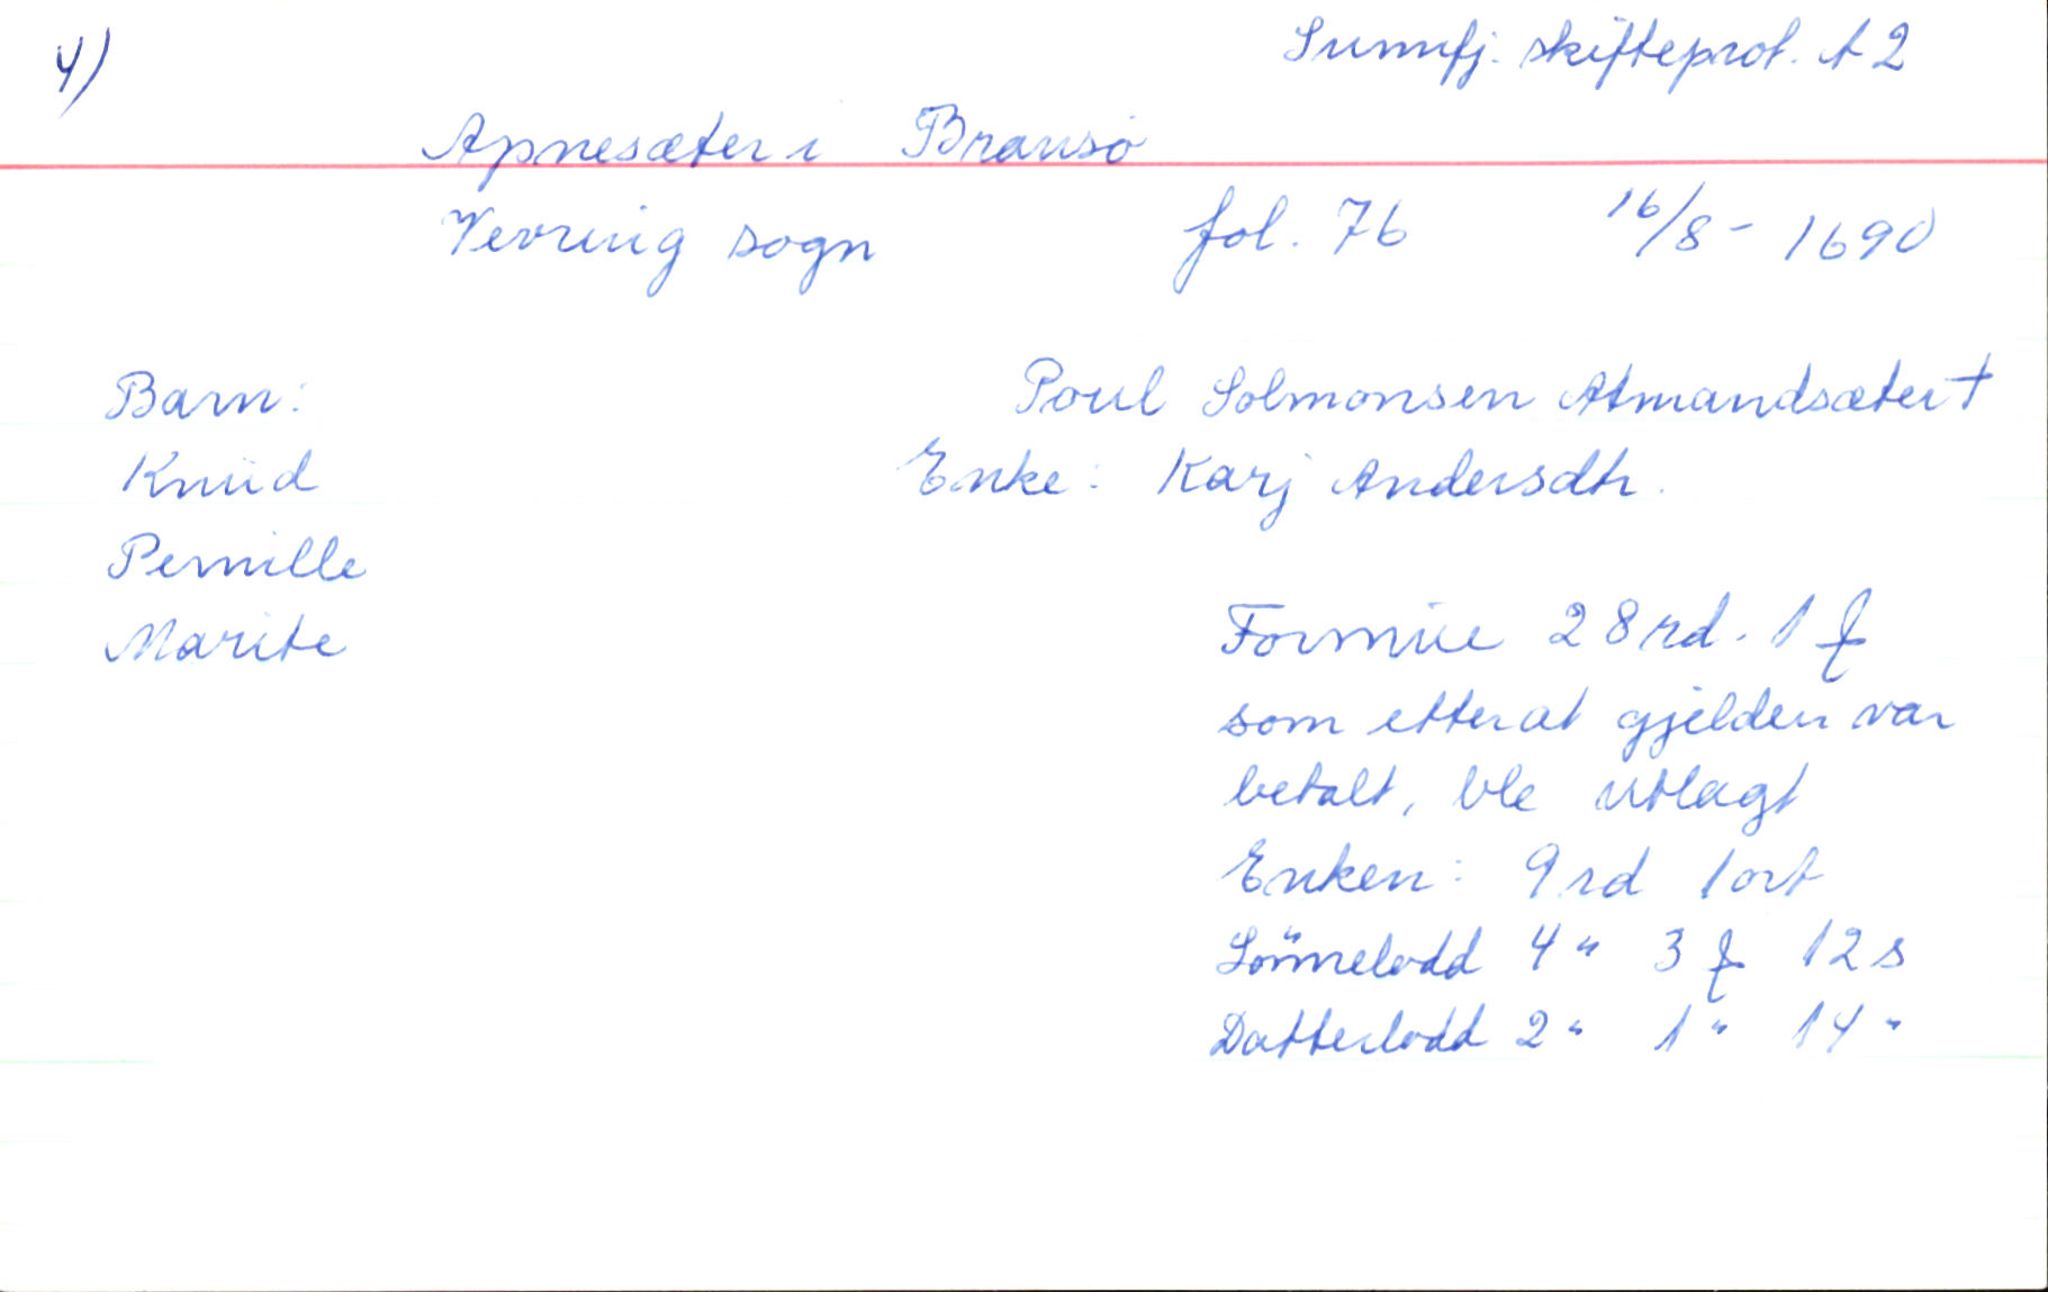 4)
Sunnfj. skifteprot. A 2
Apnesæter i Bransø
Vevring sogn fol. 76 16/8 - 1690
Barn: Poul Solmonsen Atmandsæter †
Knud Enke: Karj Andersdtr.
Pernille
Marite
Formue 28 rd. 1 ƒ
som etter at gjelden var
betalt, ble utlagt
Enken: 9 rd 1 ort
Sønnelodd 4 " 3 ƒ 12 s
Datterlodd 2 " 1 " 14 "